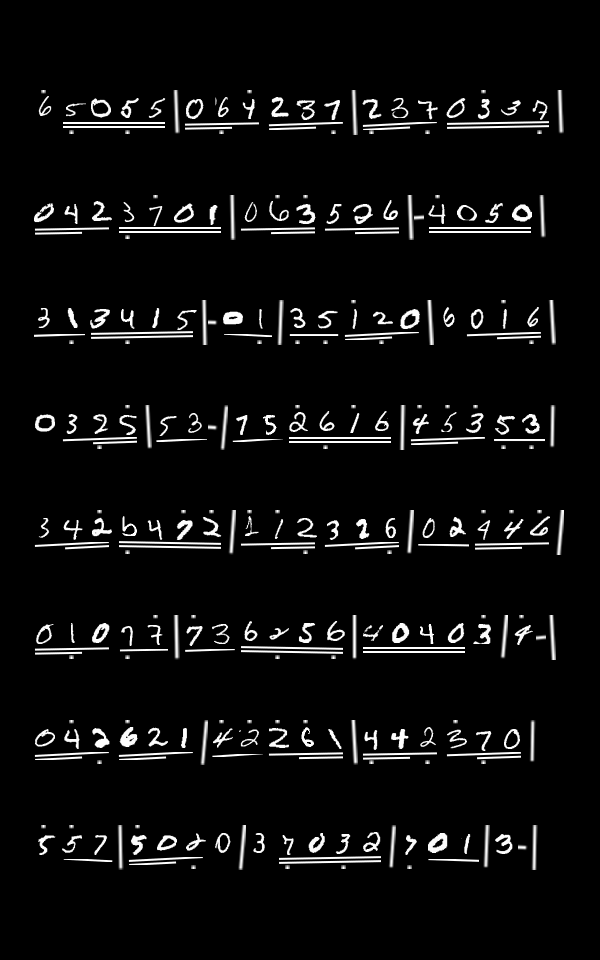 6 5 0 5 5 | 0 6 4 2 3 7 | 2 3 7 0 3 3 7 |
0 4 2 3 7 0 1 | 0 6 3 5 2 6 | - 4 0 5 0 |
3 1 3 4 1 5 | - 0 1 | 3 5 1 2 0 | 6 0 1 6 |
0 3 2 5 | 5 3 - | 7 5 2 6 1 6 | 4 5 3 5 3 |
3 4 2 6 4 7 2 | 1 1 2 3 2 6 | 0 2 4 4 6 |
0 1 0 7 7 | 7 3 6 2 5 6 | 4 0 4 0 3 | 4 - |
0 4 2 6 2 1 | 4 2 2 6 1 | 4 4 2 3 7 0 |
5 5 7 | 5 0 2 0 | 3 7 0 3 2 | 7 0 1 | 3 - |